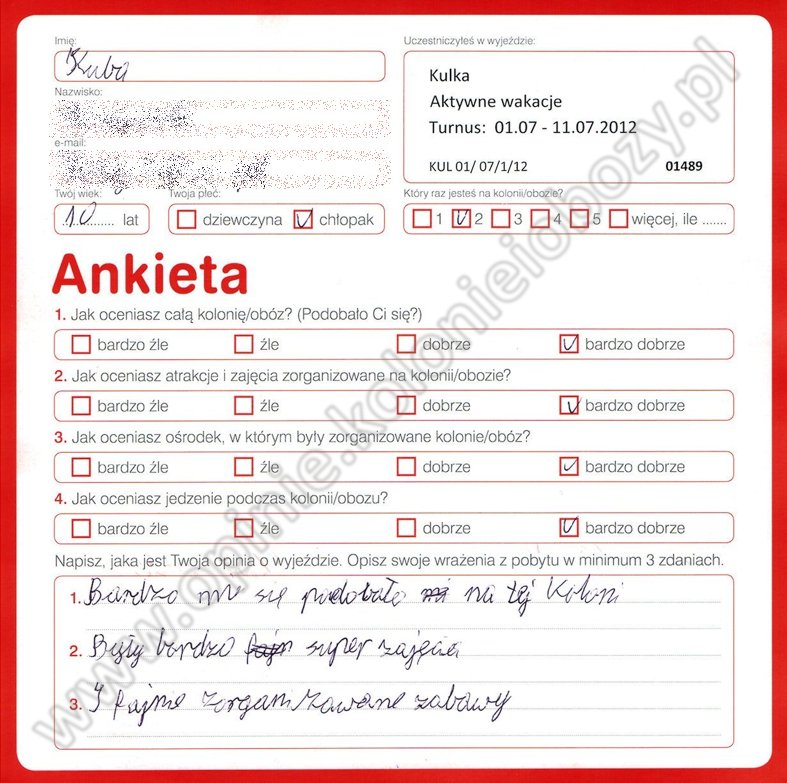 Imię:
Kuba
Uczestniczyłeś w wyjeździe:
Kulka
Aktywne wakacje
Turnus: 01.07 - 11.07.2012
KUL 01/ 07/1/12 01489
Nazwisko:
e-mail:
Twój wiek:
10 lat
Twoja płeć:
dziewczyna chłopak
Który raz jesteś na kolonii/obozie?
1 2 3 4 5 więcej, ile .......
Ankieta
1. Jak oceniasz całą kolonię/obóz? (Podobało Ci się?)
bardzo źle źle dobrze bardzo dobrze
2. Jak oceniasz atrakcje i zajęcia zorganizowane na kolonii/obozie?
bardzo źle źle dobrze bardzo dobrze
3. Jak oceniasz ośrodek, w którym były zorganizowane kolonie/obóz?
bardzo źle źle dobrze bardzo dobrze
4. Jak oceniasz jedzenie podczas kolonii/obozu?
bardzo źle źle dobrze bardzo dobrze
Napisz, jaka jest Twoja opinia o wyjeździe. Opisz swoje wrażenia z pobytu w minimum 3 zdaniach.
1. Bardzo mi się podobało na tej Koloni
2. Były bardzo super zajęcia
3. I fajnie zorganizowane zabawy
www.opinie.kolonieiobozy.pl